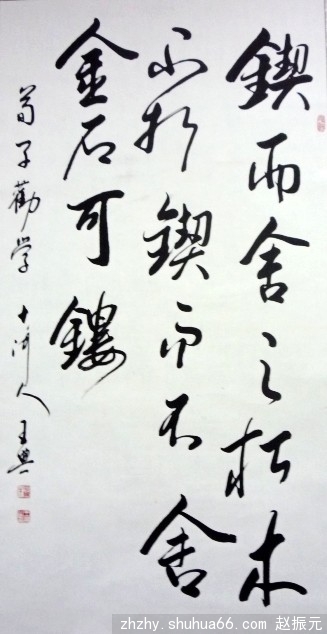 鍥而舍之朽木
不折鍥而不舍
金石可鏤
荀子勸学 十湖人 王典
zhzhy.shuhua66.com 赵振元